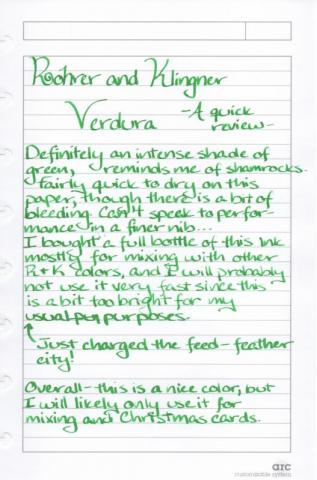 Rohrer and Klingner
Verdura
-A quick
review-
Definitely an intense shade of
green, reminds me of shamrocks.
Fairly quick to dry on this
paper, though there is a bit of
bleeding. Can't speak to perfor-
mance in a finer nib...
I bought a full bottle of this ink
mostly for mixing with other
R+K colors, and I will probably
not use it very fast since this
is a bit too bright for my
usual pen purposes.
Just charged the feed - feather
city!
Overall - this is a nice color, but
I will likely only use it for
mixing and Christmas cards.
arc
customizable system